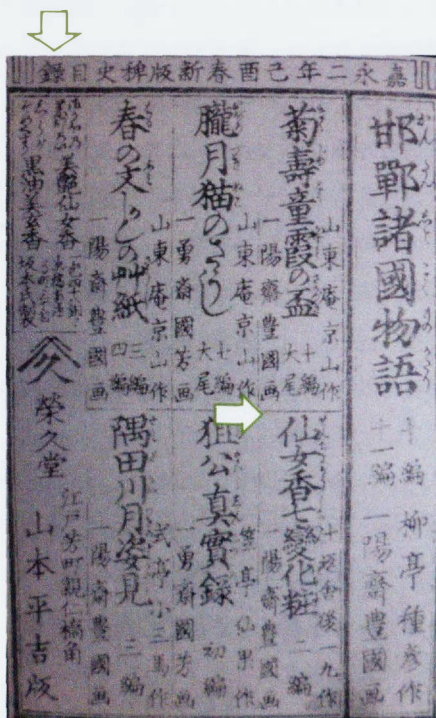 嘉永二年己酉春新版稗史目録
邯鄲諸國物語
十編
十一編
柳亭種彦作
一陽齋豊國画
菊壽童霞の盃
十編
大尾
山東庵京山作
一陽齋豊國画
仙女香七變化粧
二編
十返舎後一九作
一陽齋豊國画
朧月猫のさうし
七編
大尾
山東庵京山作
一勇齋國芳画
狙公真實録
初編
笠亭仙果作
一勇齋國芳画
春の文かしの艸紙
三編
四編
山東庵京山作
一陽齋豊國画
隅田川月姿見
三編
式亭小三馬作
一陽齋豊國画
美艶仙女香
黒油美玄香
坂本氏製
榮久堂
江戸芳町親仁橋角
山本平吉版